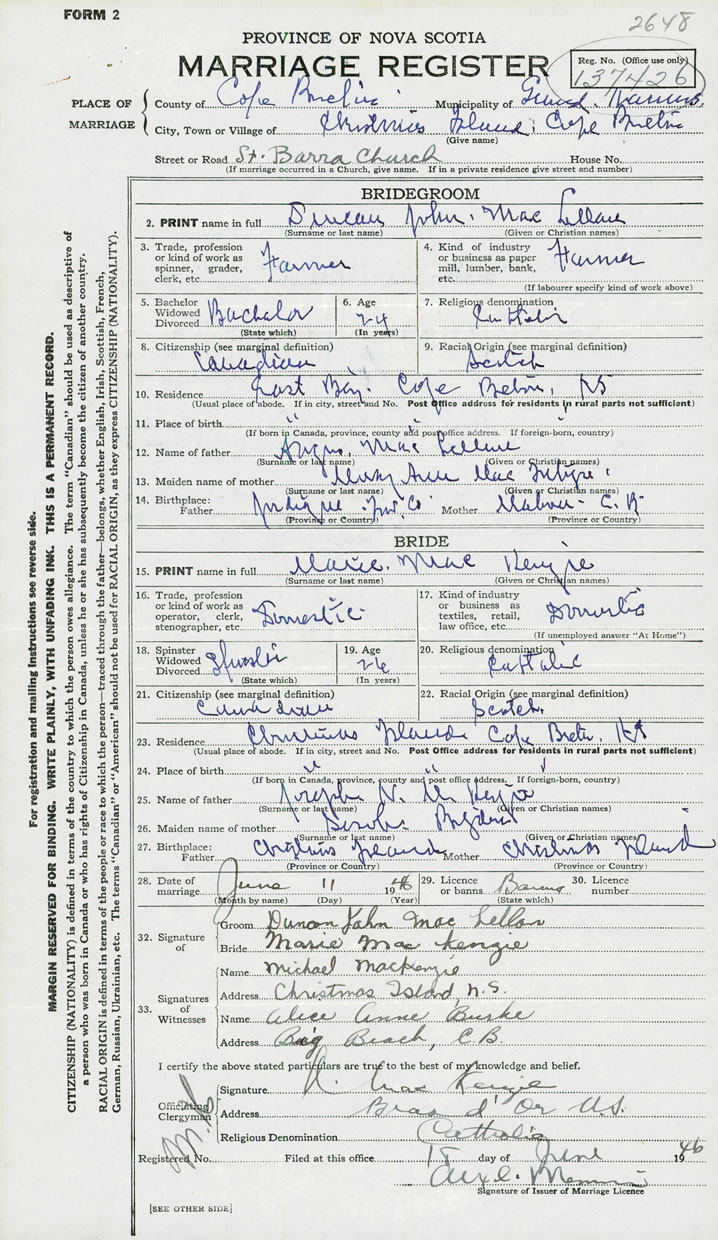 FORM 2
2648
PROVINCE OF NOVA SCOTIA
MARRIAGE REGISTER
Reg. No. (Office use only)
137426
PLACE OF MARRIAGE
County of Cape Breton Municipality of
City, Town or Village of Christmas Island, Cape Breton
(Give name)
Street or Road St. Barra Church House No.
(If marriage occurred in a Church, give name. If in a private residence give street and number)
BRIDEGROOM
2. PRINT name in full Duncan John Mac Lellan
(Surname or last name) (Given or Christian names)
3. Trade, profession or kind of work as spinner, grader, clerk, etc. Farmer
4. Kind of industry or business as paper mill, lumber, bank, etc. Farmer
(If labourer specify kind of work above)
5. Bachelor Widowed Divorced Bachelor
(State which)
6. Age 24
(In years)
7. Religious denomination Catholic
8. Citizenship (see marginal definition) Canadian
9. Racial Origin (see marginal definition) Scotch
10. Residence East Bay. Cape Breton, NS
(Usual place of abode. If in city, street and No. Post Office address for residents in rural parts not sufficient)
11. Place of birth " " "
(If born in Canada, province, county and post office address. If foreign-born, country)
12. Name of father Angus Mac Lellan
(Surname or last name) (Given or Christian names)
13. Maiden name of mother Mary Ann Mac Intyre
(Surname or last name) (Given or Christian names)
14. Birthplace: Father Mother Mabou - C. B.
(Province or Country) (Province or Country)
BRIDE
15. PRINT name in full Marie Mac Kenzie
(Surname or last name) (Given or Christian names)
16. Trade, profession or kind of work as operator, clerk, stenographer, etc. Domestic
17. Kind of industry or business as textiles, retail, law office, etc. Domestic
(If unemployed answer "At Home")
18. Spinster Widowed Divorced Spinster
(State which)
19. Age 26
(In years)
20. Religious denomination Catholic
21. Citizenship (see marginal definition) Canadian
22. Racial Origin (see marginal definition) Scotch
23. Residence Christmas Island Cape Breton, NS
(Usual place of abode. If in city, street and No. Post Office address for residents in rural parts not sufficient)
24. Place of birth " " "
(If born in Canada, province, county and post office address. If foreign-born, country)
25. Name of father Joseph N. Mc Kenzie
(Surname or last name) (Given or Christian names)
26. Maiden name of mother
(Surname or last name) (Given or Christian names)
27. Birthplace: Father Christmas Island Mother Christmas Island
(Province or Country) (Province or Country)
28. Date of marriage June 11 1946
(Month by name) (Day) (Year)
29. Licence or banns Banns
(State which)
30. Licence number
32. Signature of
Groom Duncan John Mac Lellan
Bride Marie Mac Kenzie
33. Signatures of Witnesses
Name Michael MacKenzie
Address Christmas Island, N.S.
Name Alice Anne Burke
Address Big Beach, C.B.
I certify the above stated particulars are true to the best of my knowledge and belief.
Officiating Clergyman
Signature Mac Kenzie
Address Bras d'Or N.S.
Religious Denomination Catholic
Registered No. Filed at this office 18 day of June 1946
Signature of Issuer of Marriage Licence
[SEE OTHER SIDE]
For registration and mailing instructions see reverse side.
MARGIN RESERVED FOR BINDING. WRITE PLAINLY, WITH UNFADING INK. THIS IS A PERMANENT RECORD.
CITIZENSHIP (NATIONALITY) is defined in terms of the country to which the person owes allegiance. The term "Canadian" should be used as descriptive of
a person who was born in Canada or who has rights of Citizenship in Canada, unless he or she has subsequently become the citizen of another country.
RACIAL ORIGIN is defined in terms of the people or race to which the person—traced through the father—belongs, whether English, Irish, Scottish, French,
German, Russian, Ukrainian, etc. The terms "Canadian" or "American" should not be used for RACIAL ORIGIN, as they express CITIZENSHIP (NATIONALITY).